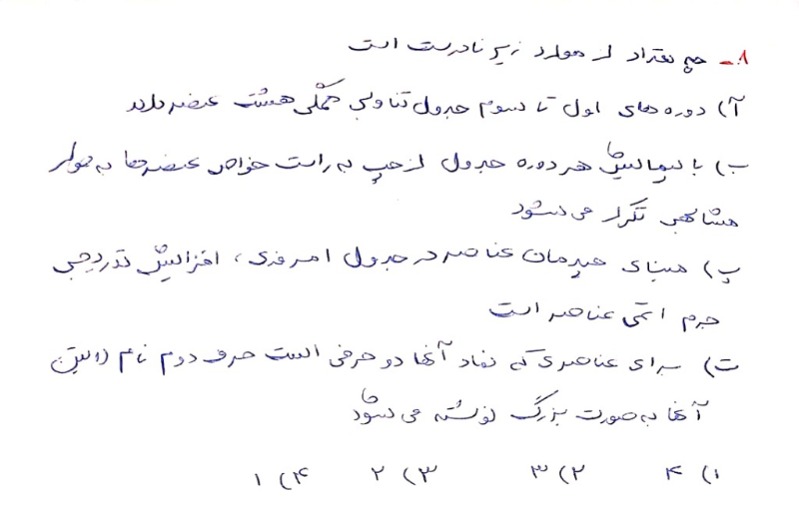 ۸ـ چه تعداد از موارد زیر نادرست است
آ) دوره های اول تا سوم جدول تناوبی همگی هشت عنصر دارند
ب) با پیمایش هر دوره جدول از چپ به راست خواص عنصرها به طور
مشابهی تکرار می شود
پ) مبنای چیدمان عناصر در جدول امروزی، افزایش تدریجی
جرم اتمی عناصر است
ت) برای عناصری که نماد آنها دو حرفی است حرف دوم نام لاتین
آنها به صورت بزرگ نوشته می شود
۱) ۴ ۲) ۳ ۳) ۲ ۴) ۱